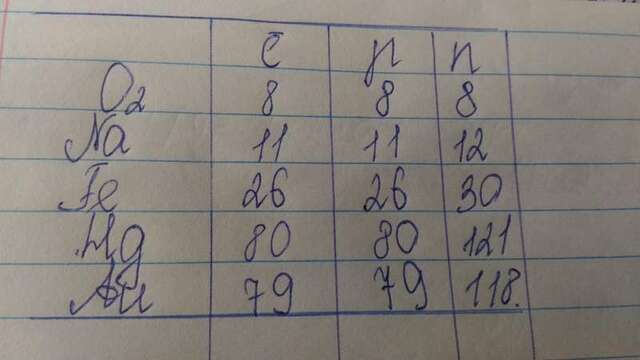 ē p n
O2 8 8 8
Na 11 11 12
Fe 26 26 30
Hg 80 80 121
Au 79 79 118.